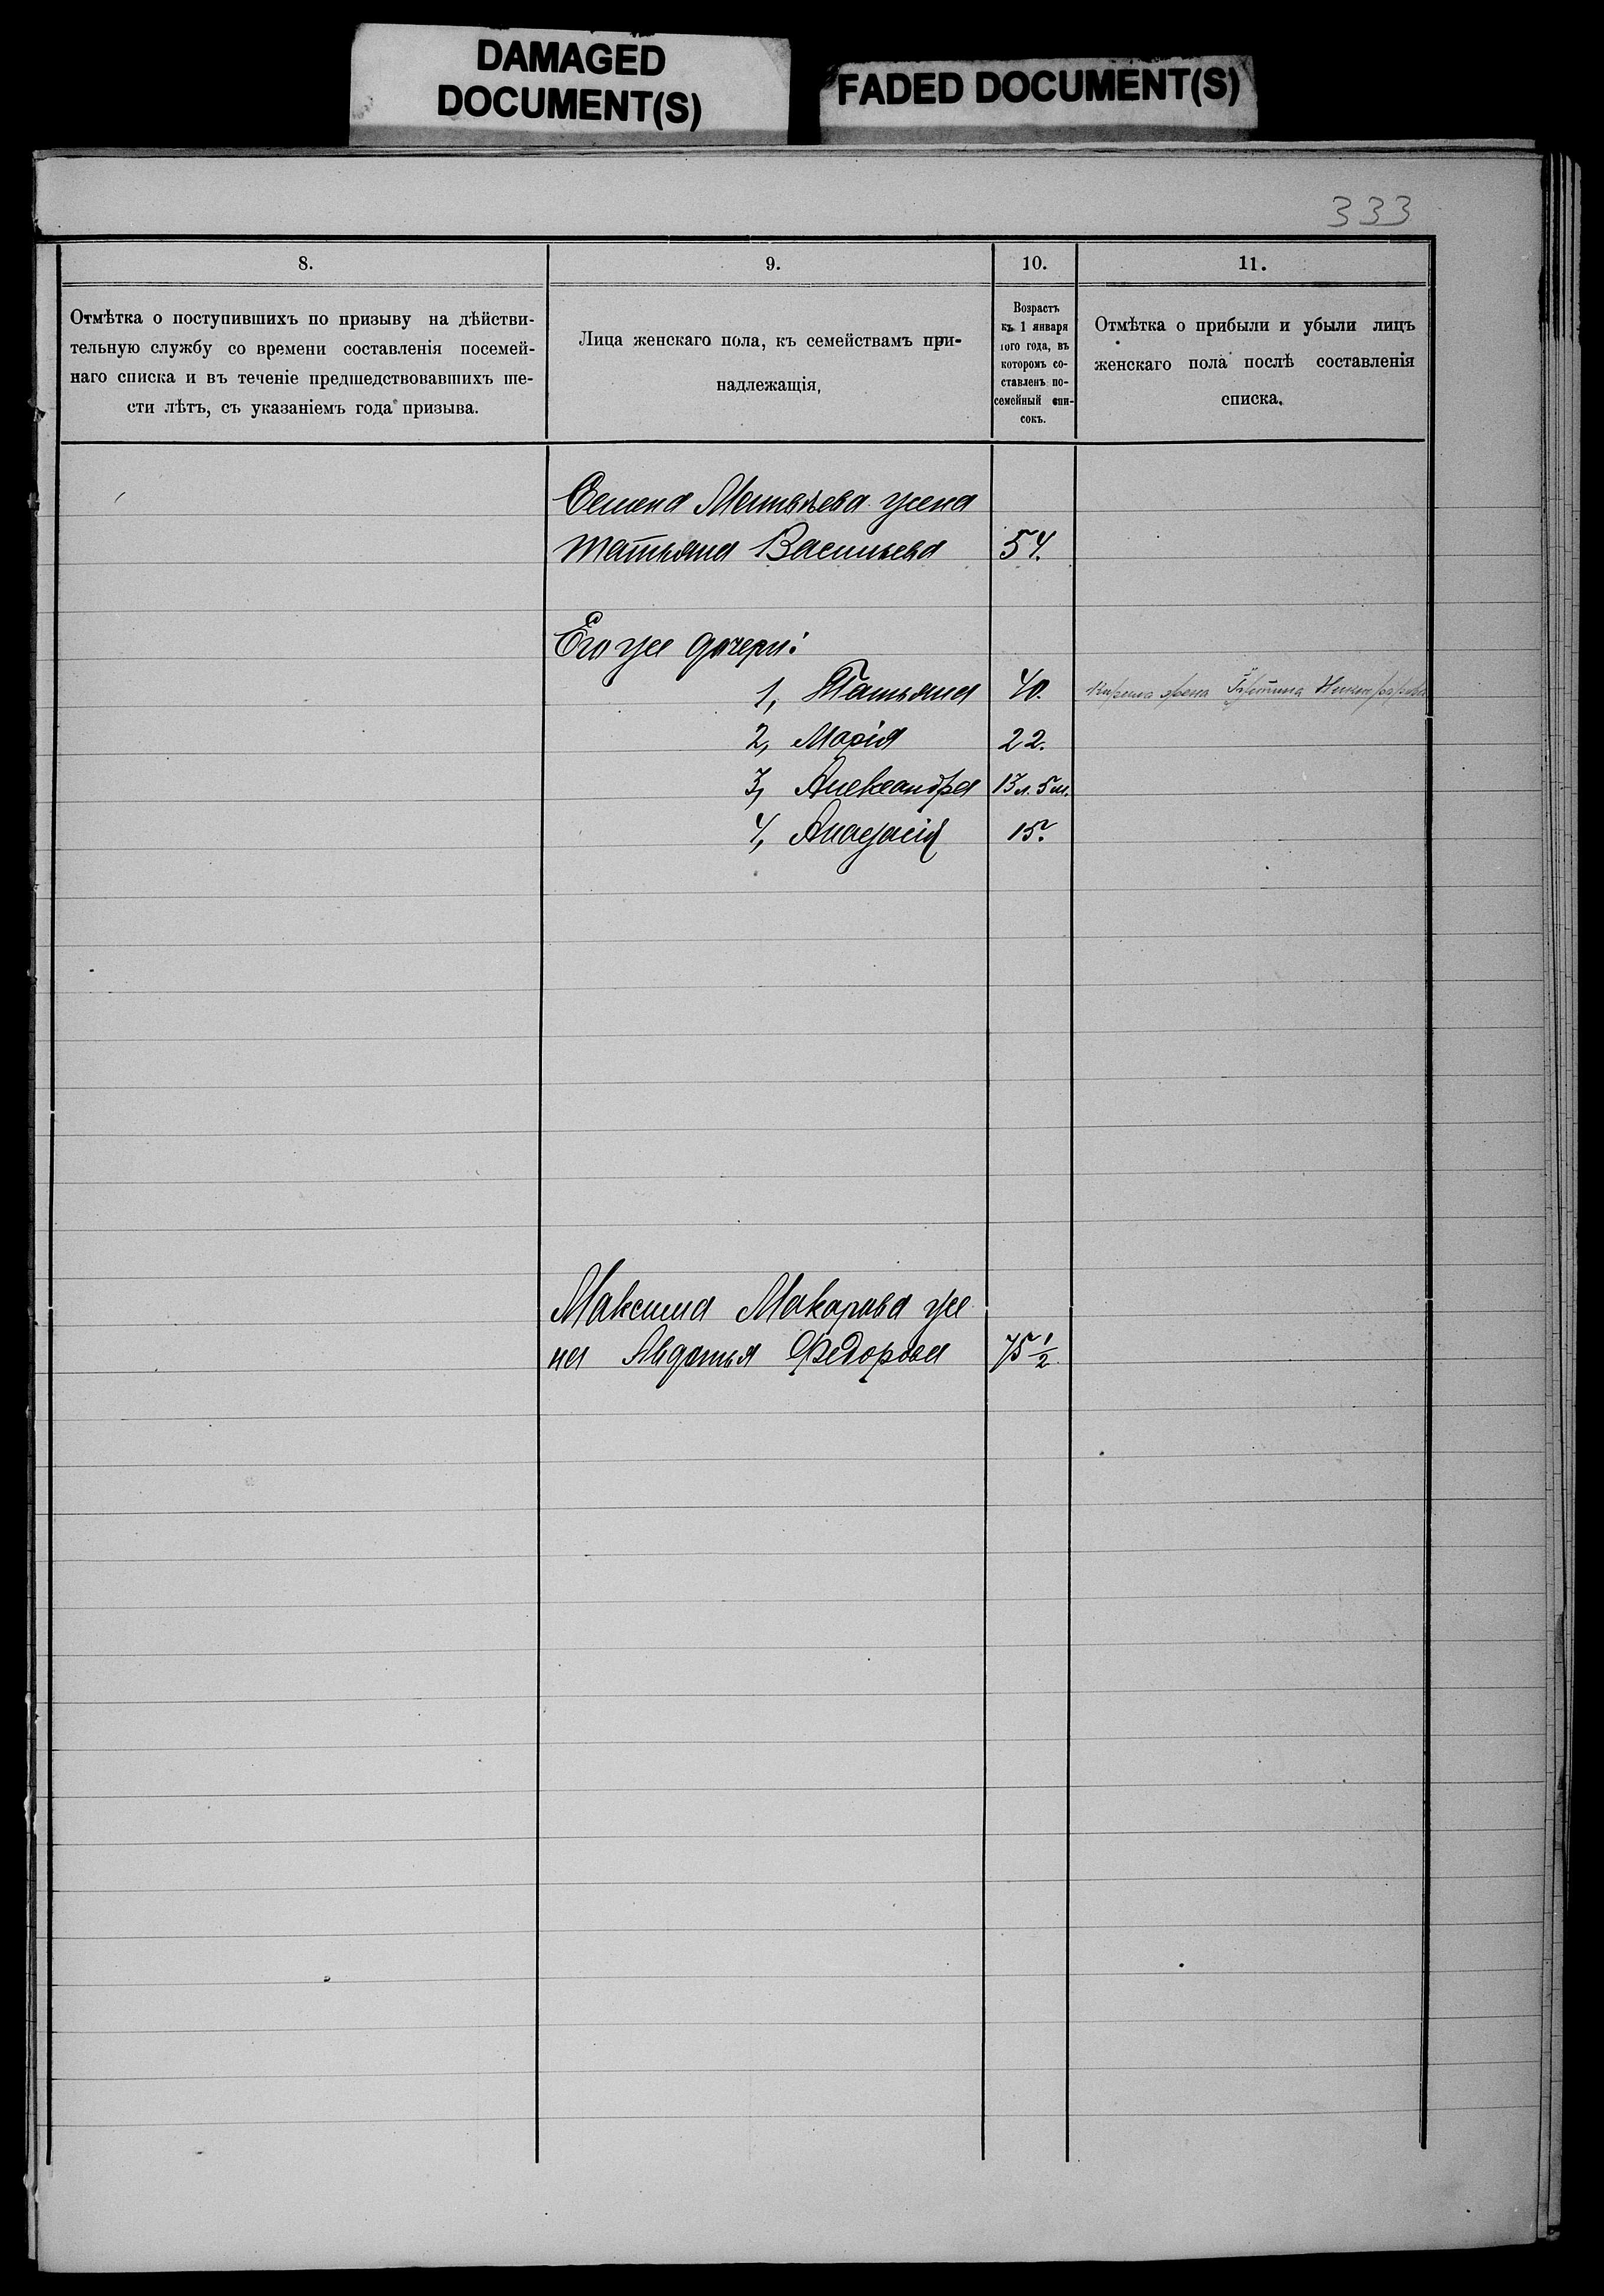 DAMAGED
DOCUMENT(S)
FADED DOCUMENT(S)
333
8.
9.
10.
11.
Отмѣтка о поступившихъ по призыву на дѣйстви-
тельную службу со времени составленія посемей-
наго списка и въ теченіе предшедствовавшихъ ше-
сти лѣтъ, съ указаніемъ года призыва.
Лица женскаго пола, къ семействамъ при-
надлежащія,
Возрастъ
къ 1 января
того года, въ
которомъ со-
ставленъ по-
семейный спи-
сокъ.
Отмѣтка о прибыли и убыли лицъ
женскаго пола послѣ составленія
списка.
Семена Матвѣева жена
Татьяна Васильева 54.
Его же дочери:
1, Татьяна 40. жена
2, Марія 22.
3, Александра 13 л. 5 м.
4, 15.
Максима Макарова же
на Авдотья Федорова 75 1/2.